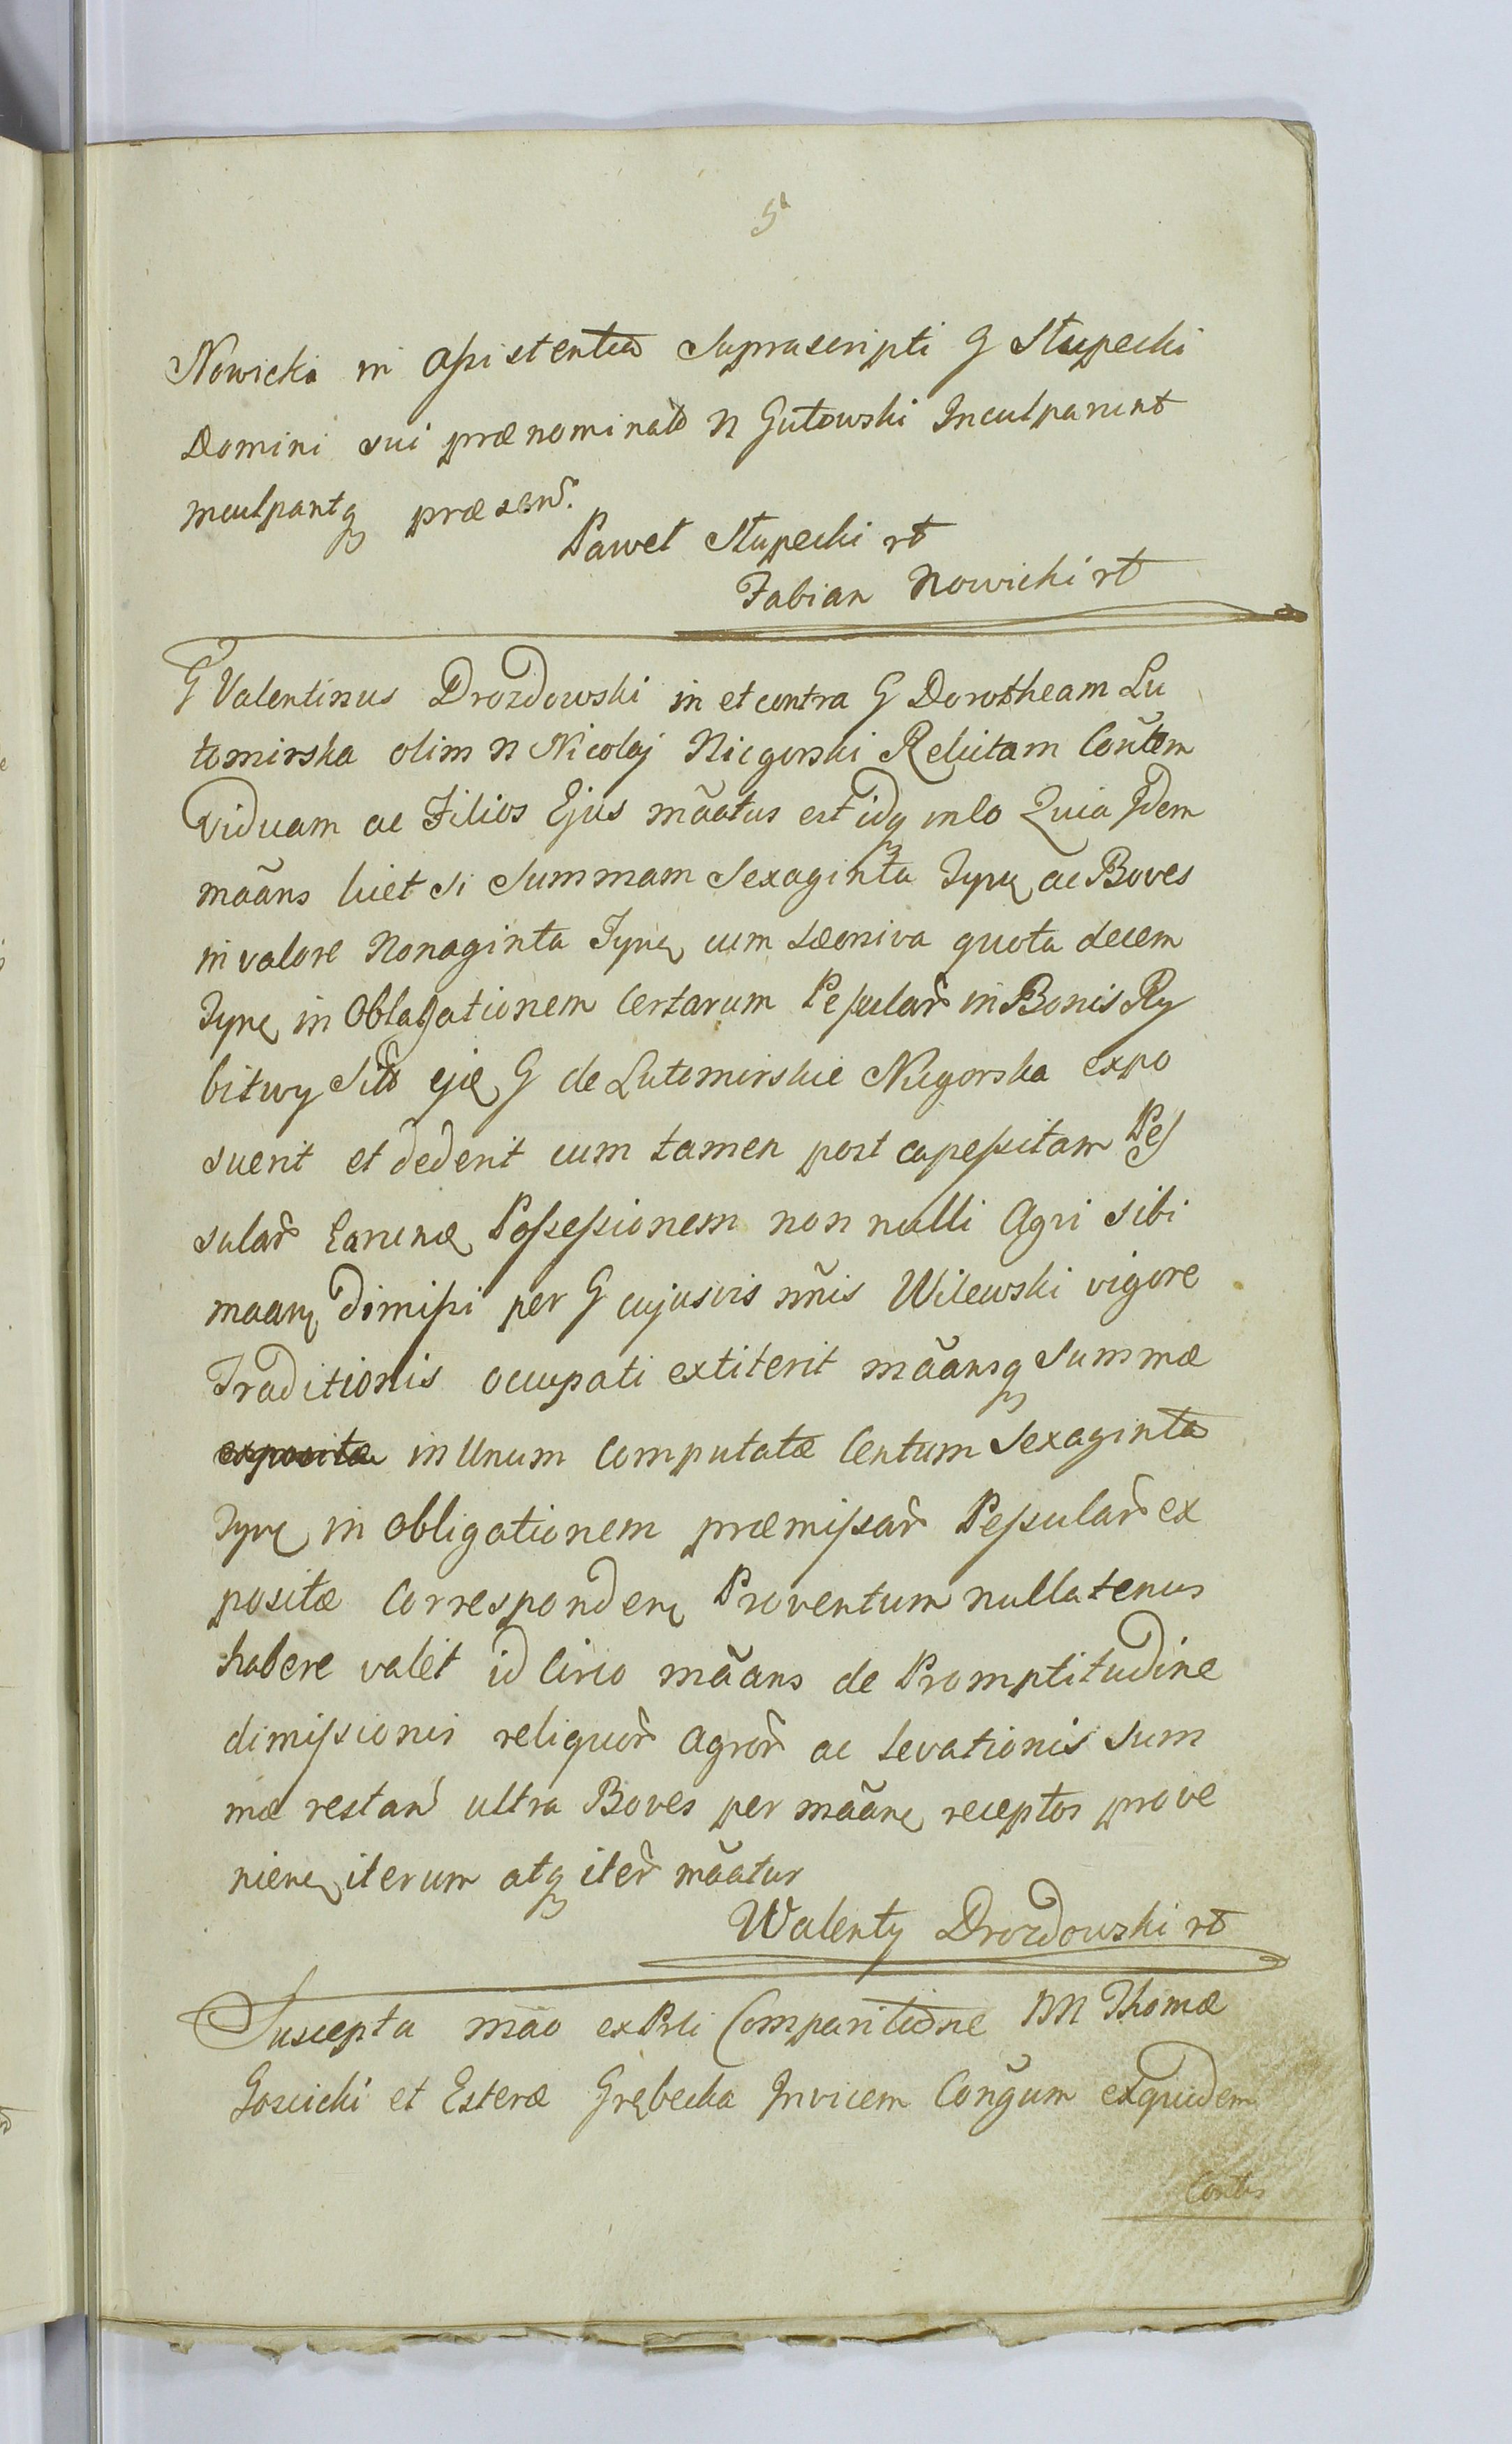 5
Nowicki in assistentia Suprascripti G Słupecki
Domini sui prænominatũ N Gutowski Inculparunt
inculpantq præsenũ.
Paweł Słupecki rt
Fabian Nowicki rt
G Valentinus Drozdowski in et contra G Dorotheam Lu
tomirska olim N Nicolaj Niegorski Relictam Cõũlem
Viduam ac Filios Ejus mãatus est idq in lo Quia Idem
mãans licet si Summam Sexaginta Tynf ac Boves
in valore Nonaginta Tynf cum quota decem
Tynf in Obligationem Certarum Pessular̃ in Bonis Ry
bitwy Sitõ G de Lutomirskie Niegorska expo
suerit et dederit cum tamen post capessitam Pes
sular̃ Possessionem non nulli Agri sibi
dimissi per G cujusvis nm̃is Wilewski vigore
Traditionis occupati extiterit mãansq Summæ
expositæ in Unum Computatæ Centum Sexaginta
Tynf in obligationem præmissar̃ Pessular̃ ex
positæ Corresponden Proventum nullatenus
habere valet id circo mãans de Promptitudine
dimissionis reliquor̃ Agror̃ ac levationis Sum
mæ restañ ultra Boves per mãanc receptos prove
nienc iterum atq iter̃ mãatur
Walenty Drozdowski rt
Suscepta mão ex Prli Comparitione NN Thomæ
Goscicki et Esteræ Grębecka Invicem Coñgum exquidem